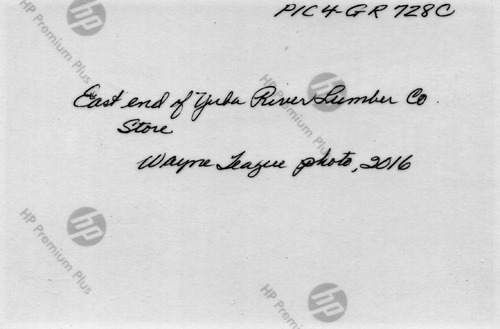 PIC4-GR 728C
East end of Yuba River Lumber Co.
Store
Wayne League photo, 2016
HP Premium Plus
hp
HP Premium Plus
hp
HP Premium Plus
hp
HP Premium Plus
hp